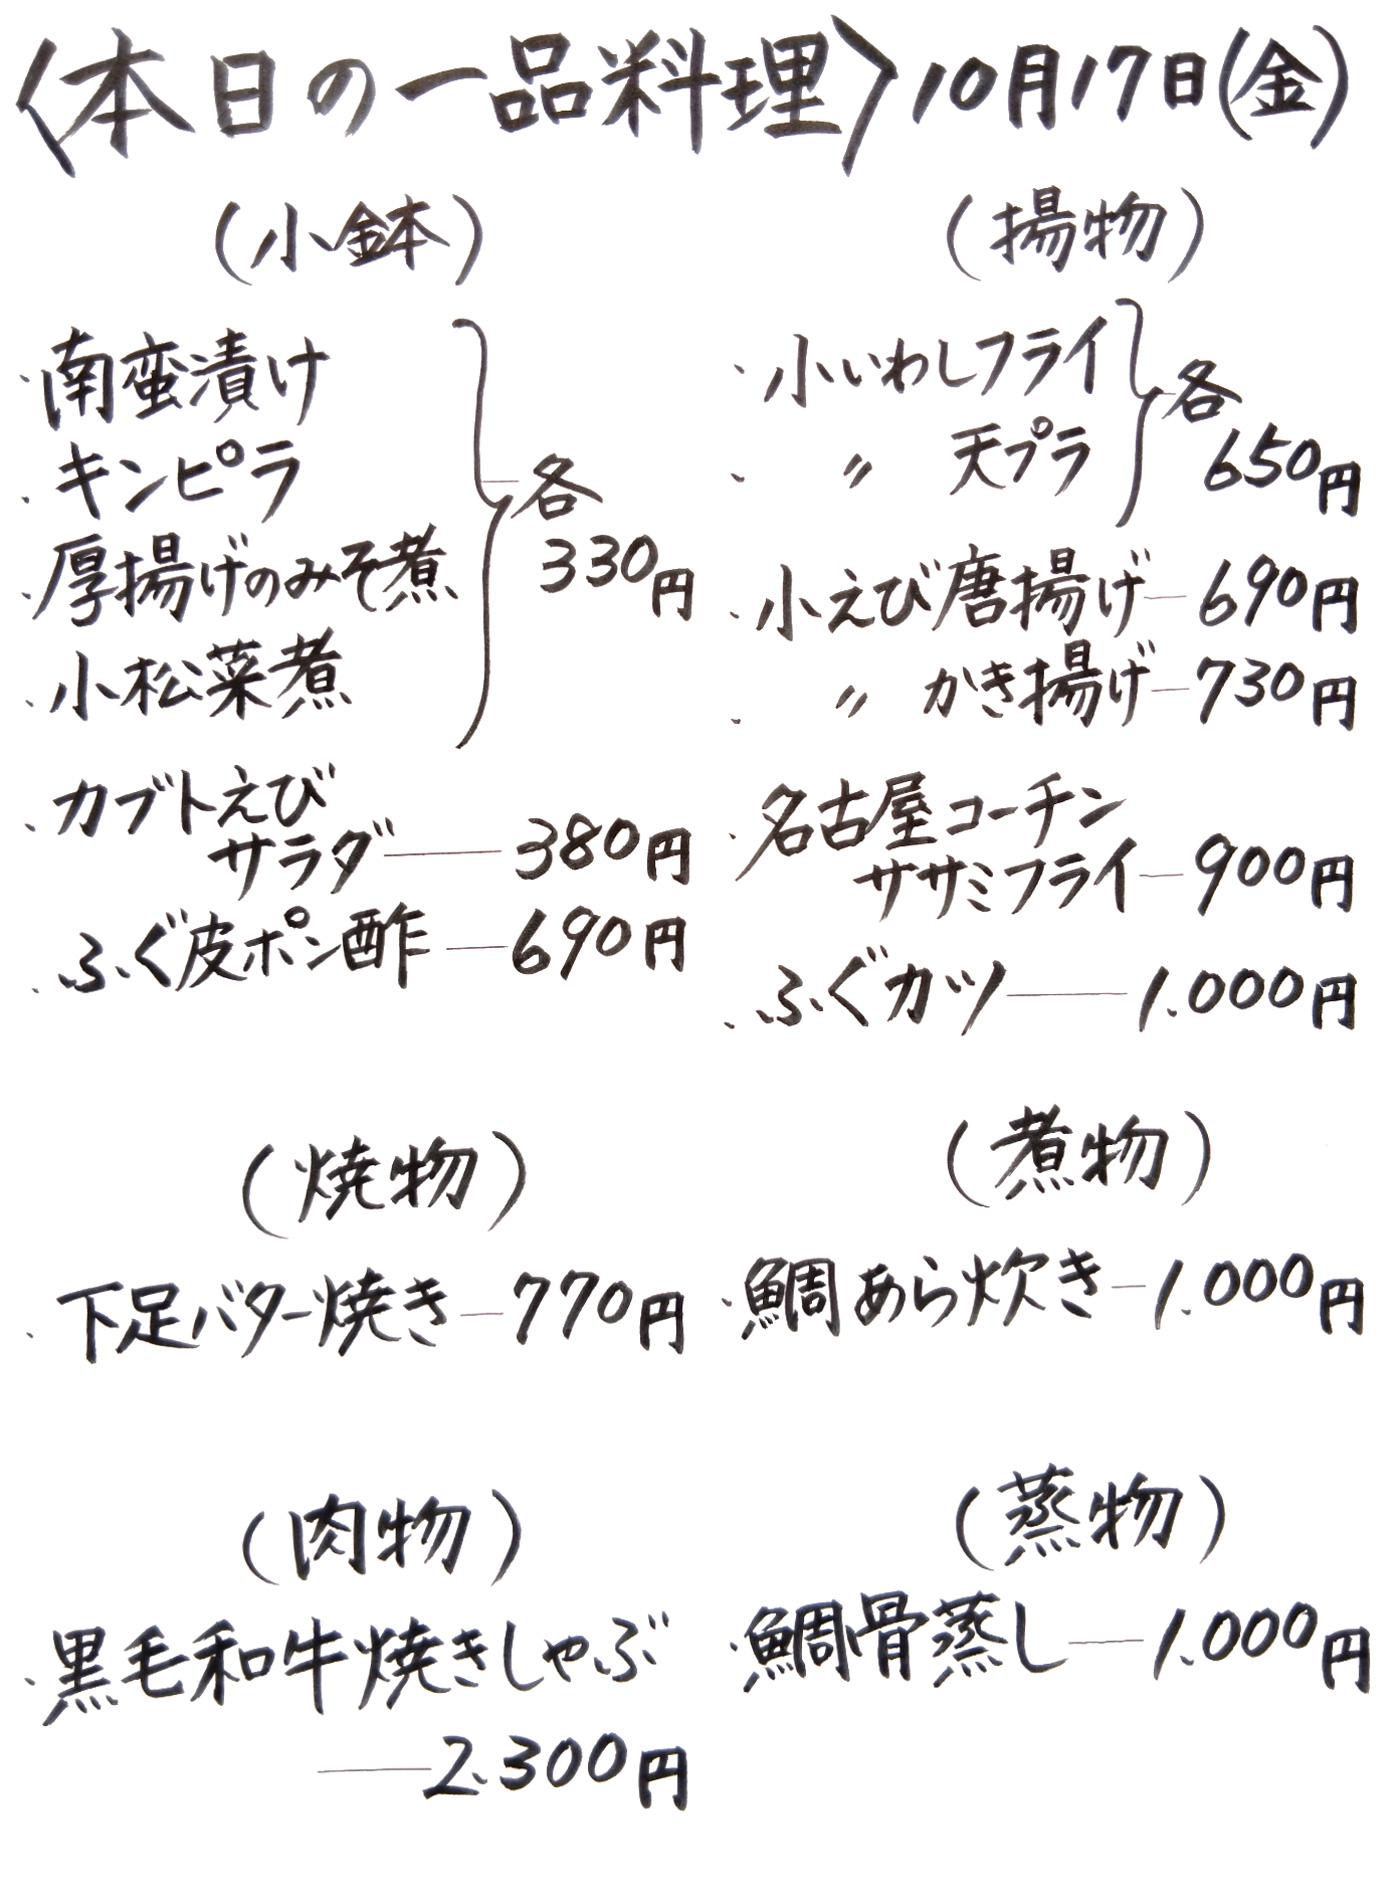 〈本日の一品料理〉10月17日(金)
(小鉢)
・南蛮漬け
・キンピラ
・厚揚げのみそ煮
・小松菜煮
各
330円
・カブトえび
サラダ――380円
・ふぐ皮ポン酢―690円
(揚物)
・小いわしフライ
・〃 天プラ
各
650円
・小えび唐揚げ―690円
・〃 かき揚げ―730円
・名古屋コーチン
ササミフライ―900円
・ふぐカツ――1.000円
(焼物)
・下足バター焼き―770円
(煮物)
・鯛あら炊き―1.000円
(肉物)
・黒毛和牛焼きしゃぶ
――2.300円
(蒸物)
・鯛骨蒸し―1.000円